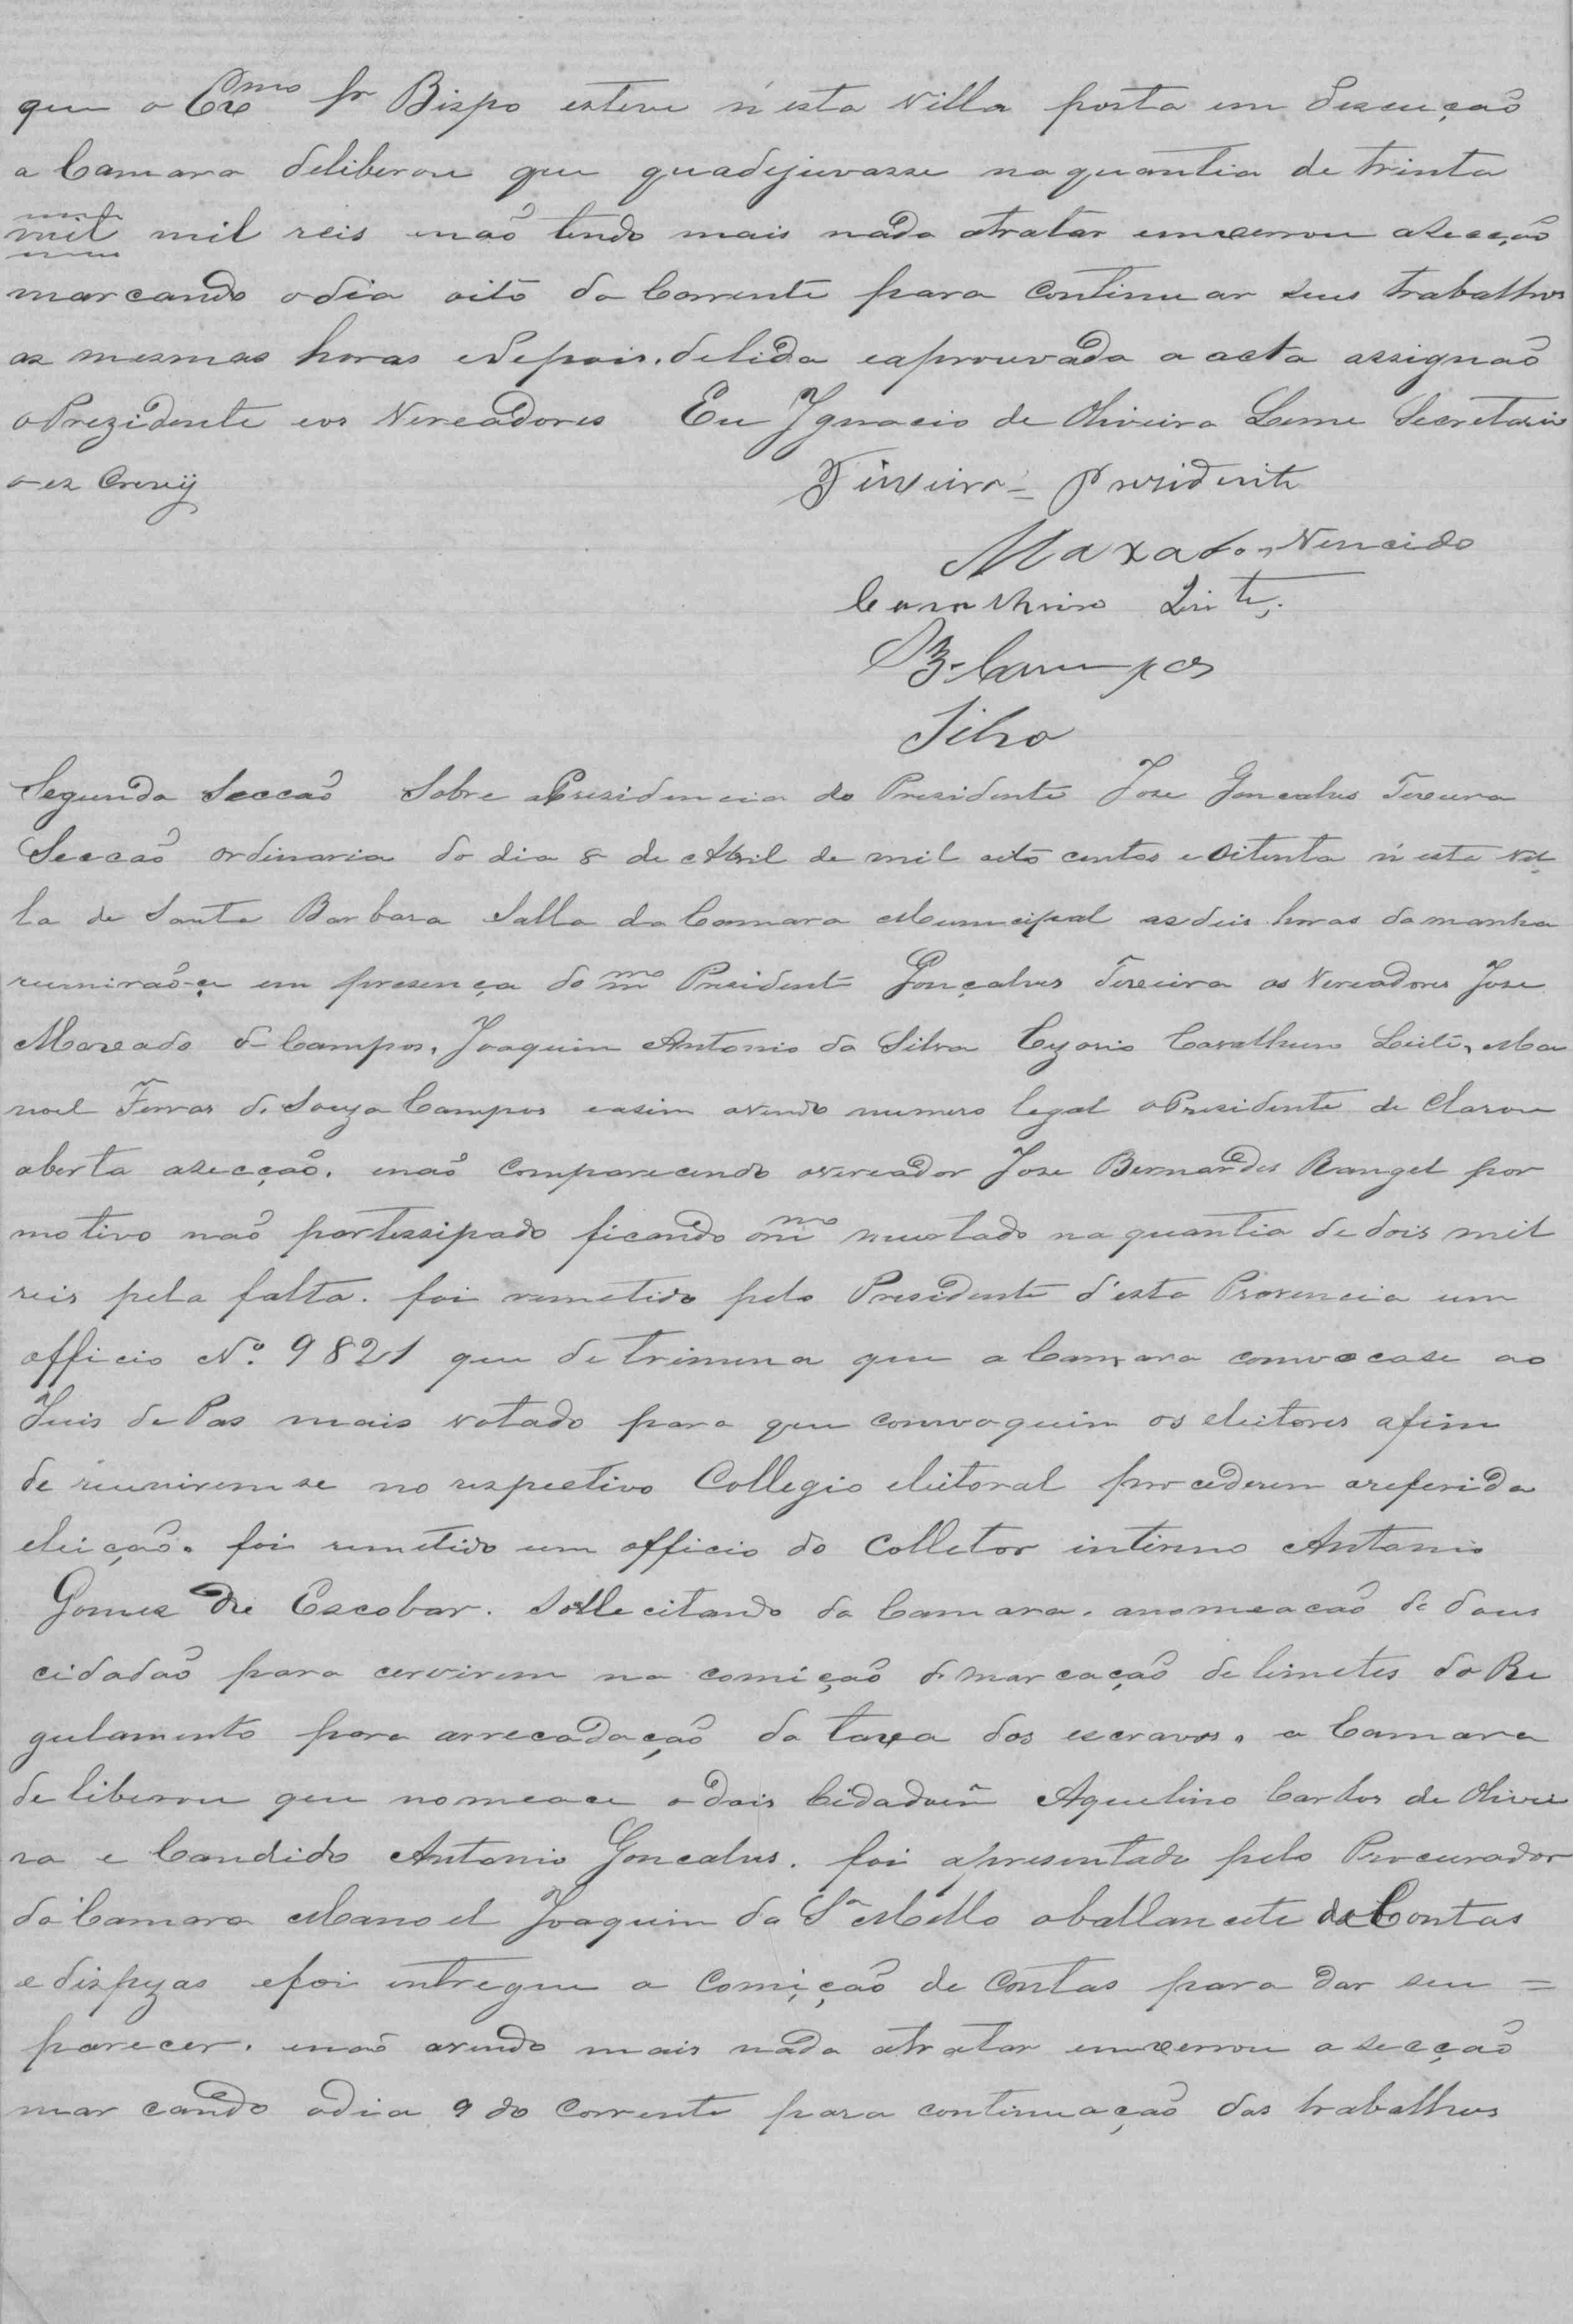 que o Exmo Sr Bispo esteve n'esta villa posta em descução
a Camara deliberou que quadejuvasse na quantia de trinta
mil mil reis enão tendo mais nada atratar emcerrou aSecção
marcando odia oito do Corrente para Continuar seus trabalhos
as mesmas horas edepois. delida eaprouvada a acta assignão
oPrezidente eos Vereadores Eu Ignacio de Oliveira Leme Secretario
o es Crevÿ
Teixeira = Presidente
Maxado, Vencido
Carvalheiro Leite,
B. Campos
Silva
Segunda Seccão Sobre aPresidencia do Presidente Jose Goncalves Texeura
Seccão ordinaria do dia 8 de Abril de mil oito centos e oitenta n'esta vil
la de Santa Barbara Salla da Camara Municipal as deis horas da manha
reunirão-çe em presença do mmo Presidente Gonçalves Texeira os Vereadores Jose
Maxado de Campos, Joaquim Antonio da Silva Cezario Carvalheiro Leite, Ma
noel Ferras de Souza Campos easim avendo numero legal oPresidente de Clarou
aberta asecção. enão Comparecendo overeador Jose Bernardes Rangel por
motivo não partessipado ficando o mmo muvtado na quantia de dois mil
reis pela falta. foi remetido pelo Presidente d'esta Provencia um
officio No. 9821 que detrimina que a Camara comvocase ao
Juis de Pas mais votado para que convoquim os eleitores afim
de reunirem se no respectivo Collegio eleitoral procederem areferida
eleição. foi remetido um officio do Colletor interino Antonio
Gomes de Escobar. Sollecitando da Camara. anomeacão de dous
cidadão para cervirem na comição demarcação de limetes do Re
gulamento para arrecadação da taxa dos escravos. a Camara
deliberou que nomeace o dois Cidadoens Aquelino Carlos de Olivei
ra e Candido Antonio Goncalves. foi apresentado pelo Procurador
da Camara Manoel Joaquim da Sa Mello oballancete de Contas
e dispezas efoi entregue a Comição de Contas para dar seu =
parecer. enão avendo mais nada atratar emcerrou a secção
mar cando odia 9 do Corrente para continuação dos trabalhos